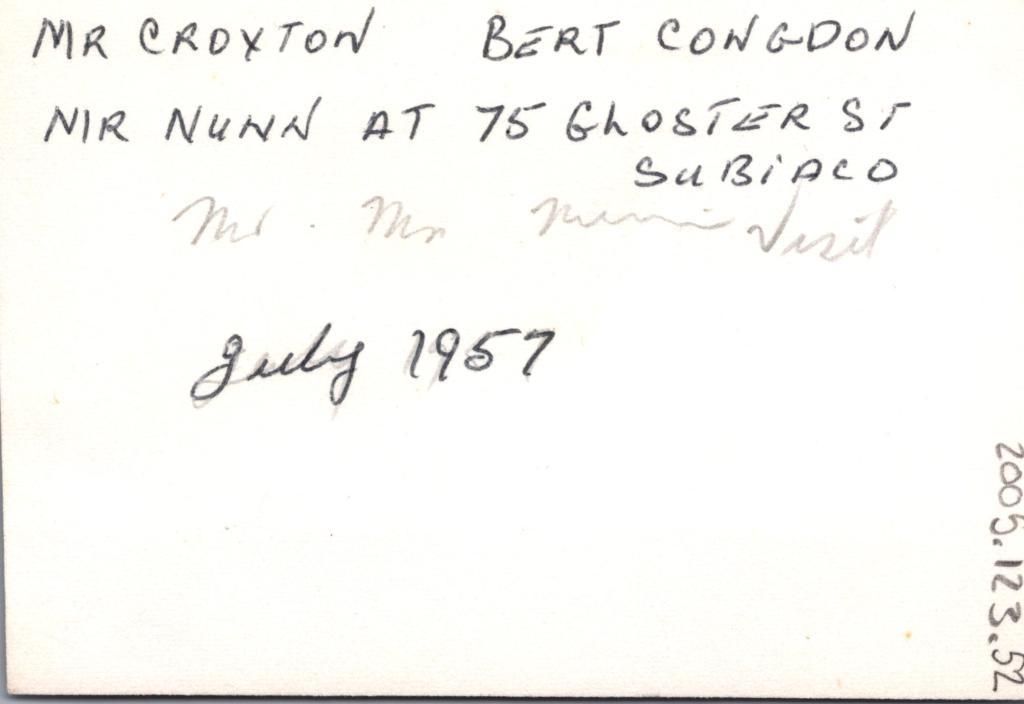 MR CROXTON BERT CONGDON
MR NUNN AT 75 GLOSTER ST
SUBIACO
Mr. Mrs Visit
July 1957
2005.123.52